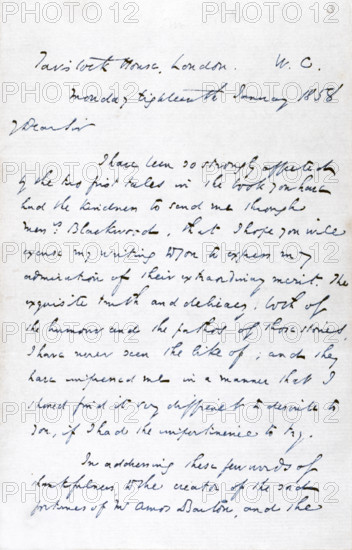 Tavistock House, London. W.C.
Monday Eighteenth January 1858
My Dear Sir
I have been so strongly affected
by the two first tales in the book you have
had the kindness to send me through
Messrs Blackwood, that I hope you will
excuse my writing to you to express my
admiration of their extraordinary merit. The
exquisite truth and delicacy, both of
the humour and the pathos of those stories,
I have never seen the like of; and they
have impressed me in a manner that I
should find it very difficult to describe to
you, if I had the impertinence to try.
In addressing these few words of
thankfulness to the creator of the sad
fortunes of Mr Amos Barton, and the
PHOTO12